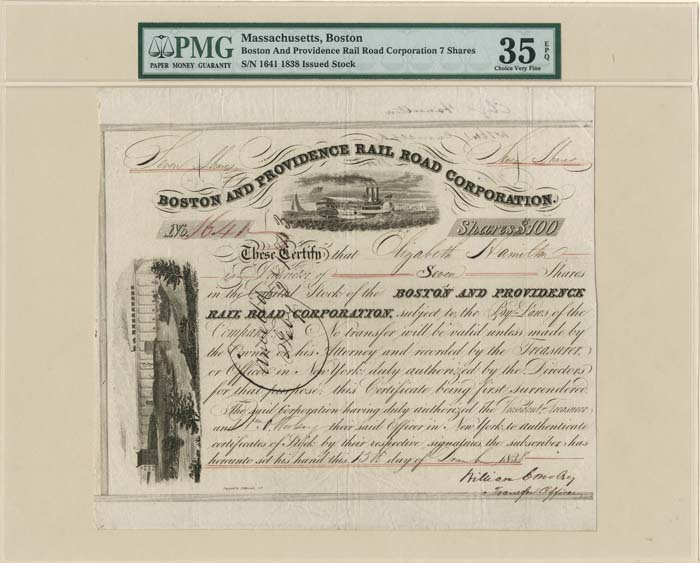 PMG
PAPER MONEY GUARANTY
Massachusetts, Boston
Boston And Providence Rail Road Corporation 7 Shares
S/N 1641 1838 Issued Stock
35 EPQ
Choice Very Fine
Seven Shares
Shares
BOSTON AND PROVIDENCE RAIL ROAD CORPORATION.
No. 1641
Shares $100
These Certify that Elizabeth Hamilton
is Proprietor of Seven Shares
in the Capital Stock of the BOSTON AND PROVIDENCE
RAIL ROAD CORPORATION, subject to the Bye Laws of the
Company. No transfer will be valid unless made by
the Owner or his Attorney and recorded by the Treasurer,
or Officer in New York duly authorized by the Directors
for that purpose; this Certificate being first surrendered.
The said Corporation having duly authorized the President & Treasurer
and their said Officer in New York to authenticate
certificates of Stock by their respective signatures, the subscriber has
hereunto set his hand this 15th day of December 1838
William
Transfer Officer